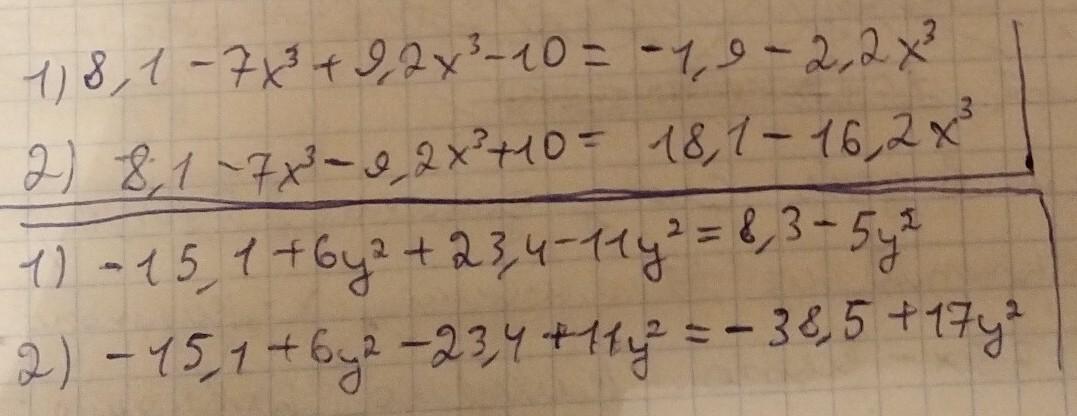 1) 8,1 - 7x³ + 9,2x³ - 10 = -1,9 - 2,2x³
2) 8,1 - 7x³ - 9,2x³ + 10 = 18,1 - 16,2x³
1) -15,1 + 6y² + 23,4 - 11y² = 8,3 - 5y²
2) -15,1 + 6y² - 23,4 + 11y² = -38,5 + 17y²